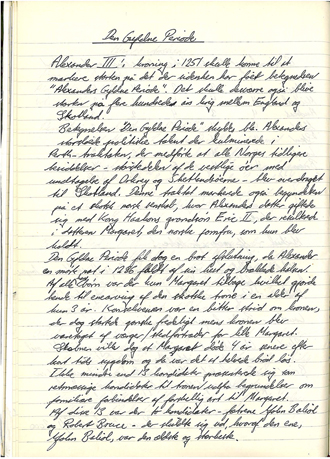 Den Gyldne Periode
Alexander III's kroning i 1251 skulle komme til at
markere starten på det der sidenhen har fået betegnelsen
"Alexanders Gyldne Periode". Det skulle desværre også blive
starten på flere hundrede års krig mellem England og
Skotland.
Betegnelsen "Den Gyldne Periode" skyldes bl.a. Alexanders
storslåede politiske talent der kulminerede i
Perth-traktaten, der medførte at alle Norges tidligere
besiddelser - størstedelen af de vestlige øer - med
undtagelse af Orkney og Shetlandsøerne - blev overdraget
til Skotland. Denne traktat markerede også begyndelsen
på et skotsk-norsk venskab, hvor Alexanders datter giftede
sig med Kong Haakons grandsøn Eric II, der resulterede
i datteren Margaret, den norske jomfru, som hun blev
kaldt.
Den Gyldne Periode fik dog en brat afslutning, da Alexander
en mørk nat i 1286 faldt af sin hest og brækkede halsen.
Af alle børn var der kun Margaret tilbage hvilket gjorde
hende til enearving af den skotske trone i en alder af
kun 3 år. Konsekvensen var en bitter strid om tronen,
der dog startede ganske fredeligt mens tronen blev
varetaget af værger/statholdere for lille Margaret.
Skæbnen ville dog at Margaret døde 4 år senere efter
kort tids sygdom og da var det et telende brød løs.
Ikke mindre end 13 kandidater præsenterede sig som
retmæssige kandidater til tronen udfra begrundelser om
familiære forbindelser af forskellig art til Margaret.
Af disse 13 var der to kandidater - fætrene John Baliol
og Robert Bruce - der skilte sig ud, hvoraf den ene,
John Baliol, var den ældste og stærkeste.